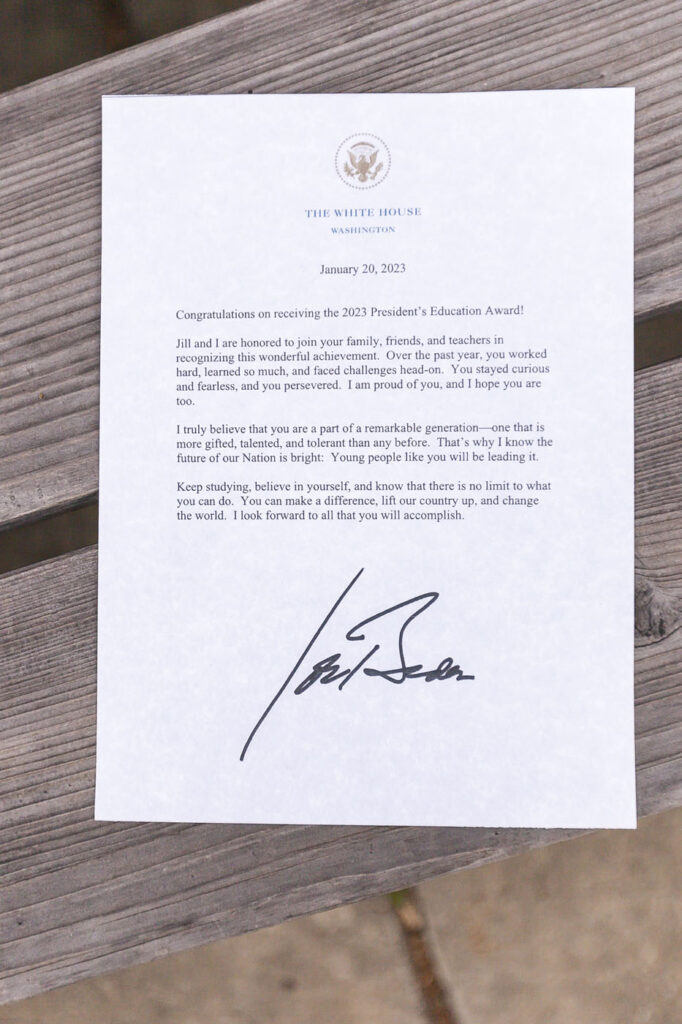 THE WHITE HOUSE
WASHINGTON
January 20, 2023
Congratulations on receiving the 2023 President's Education Award!
Jill and I are honored to join your family, friends, and teachers in
recognizing this wonderful achievement.  Over the past year, you worked
hard, learned so much, and faced challenges head-on.  You stayed curious
and fearless, and you persevered.  I am proud of you, and I hope you are
too.
I truly believe that you are a part of a remarkable generation—one that is
more gifted, talented, and tolerant than any before.  That's why I know the
future of our Nation is bright:  Young people like you will be leading it.
Keep studying, believe in yourself, and know that there is no limit to what
you can do.  You can make a difference, lift our country up, and change
the world.  I look forward to all that you will accomplish.
Joe Biden